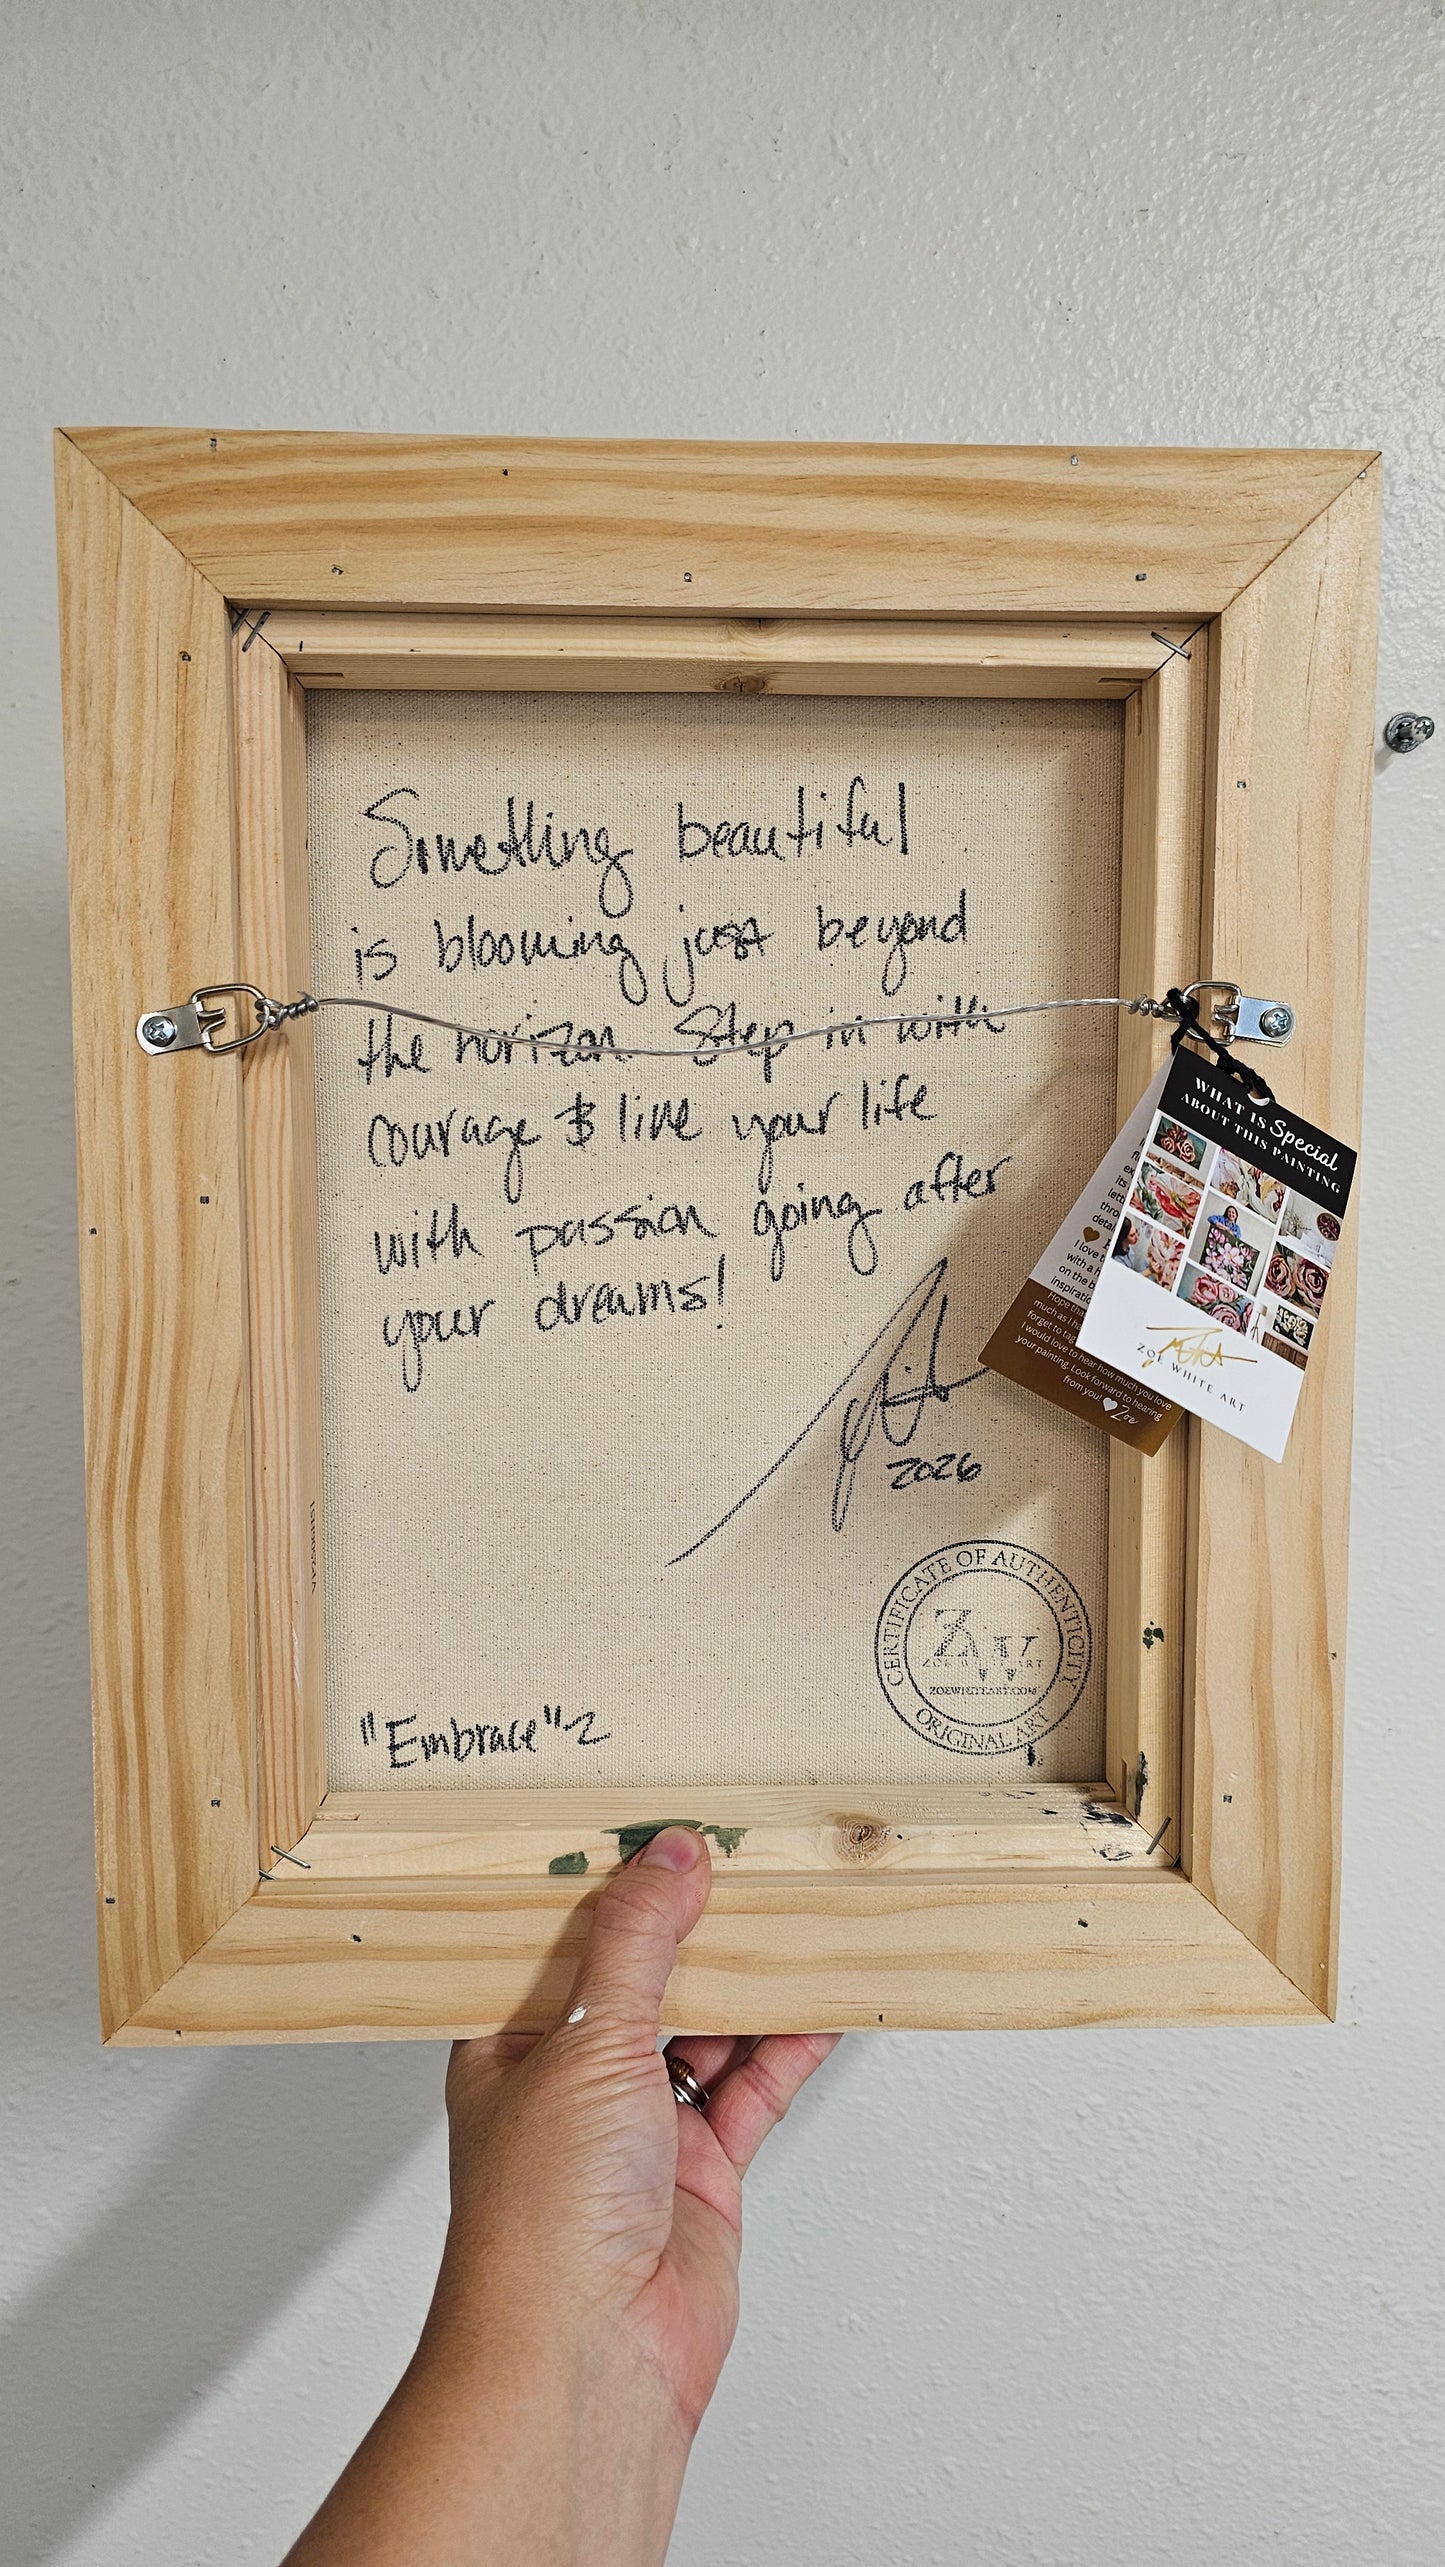 Something beautiful
is blooming just beyond
the horizon. Step in with
courage & live your life
with passion going after
your dreams!
2026
"Embrace" 2
CERTIFICATE OF AUTHENTICITY
ZOE WHITE ART
ZOEWHITEART.COM
ORIGINAL ART
WHAT IS Special
ABOUT THIS PAINTING
ZOE WHITE ART
I love t
with a h
on the b
inspiratio
Hope thi
much as I h
forget to tag
I would love to hear how much you love
your painting. Look forward to hearing
from you! Zoe